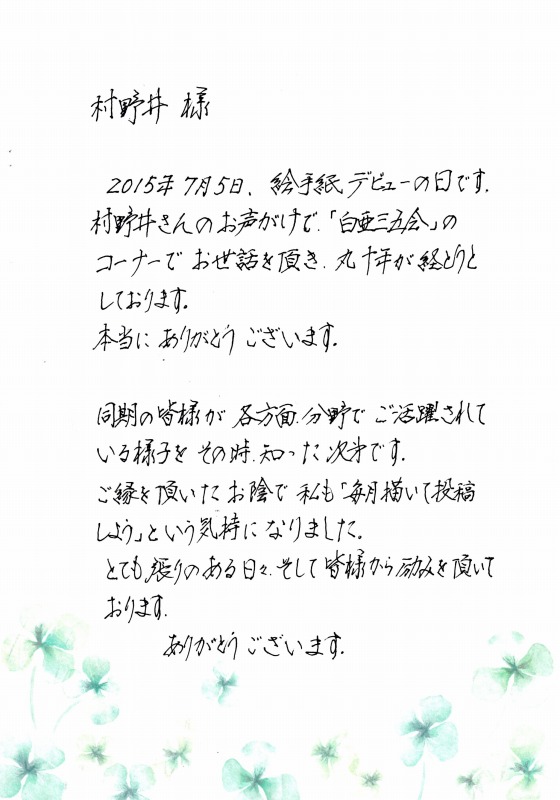 村野井 様
2015年7月5日、絵手紙デビューの日です。
村野井さんのお声がけで、「白亜三五会」の
コーナーでお世話を頂き、丸十年が経とうと
しております。
本当にありがとうございます。
同期の皆様が各方面、分野でご活躍されて
いる様子をその時、知った次第です。
ご縁を頂いたお陰で私も「毎月描いて投稿
しよう」という気持になりました。
とても張りのある日々、そして皆様から励みを頂いて
おります。
ありがとうございます。